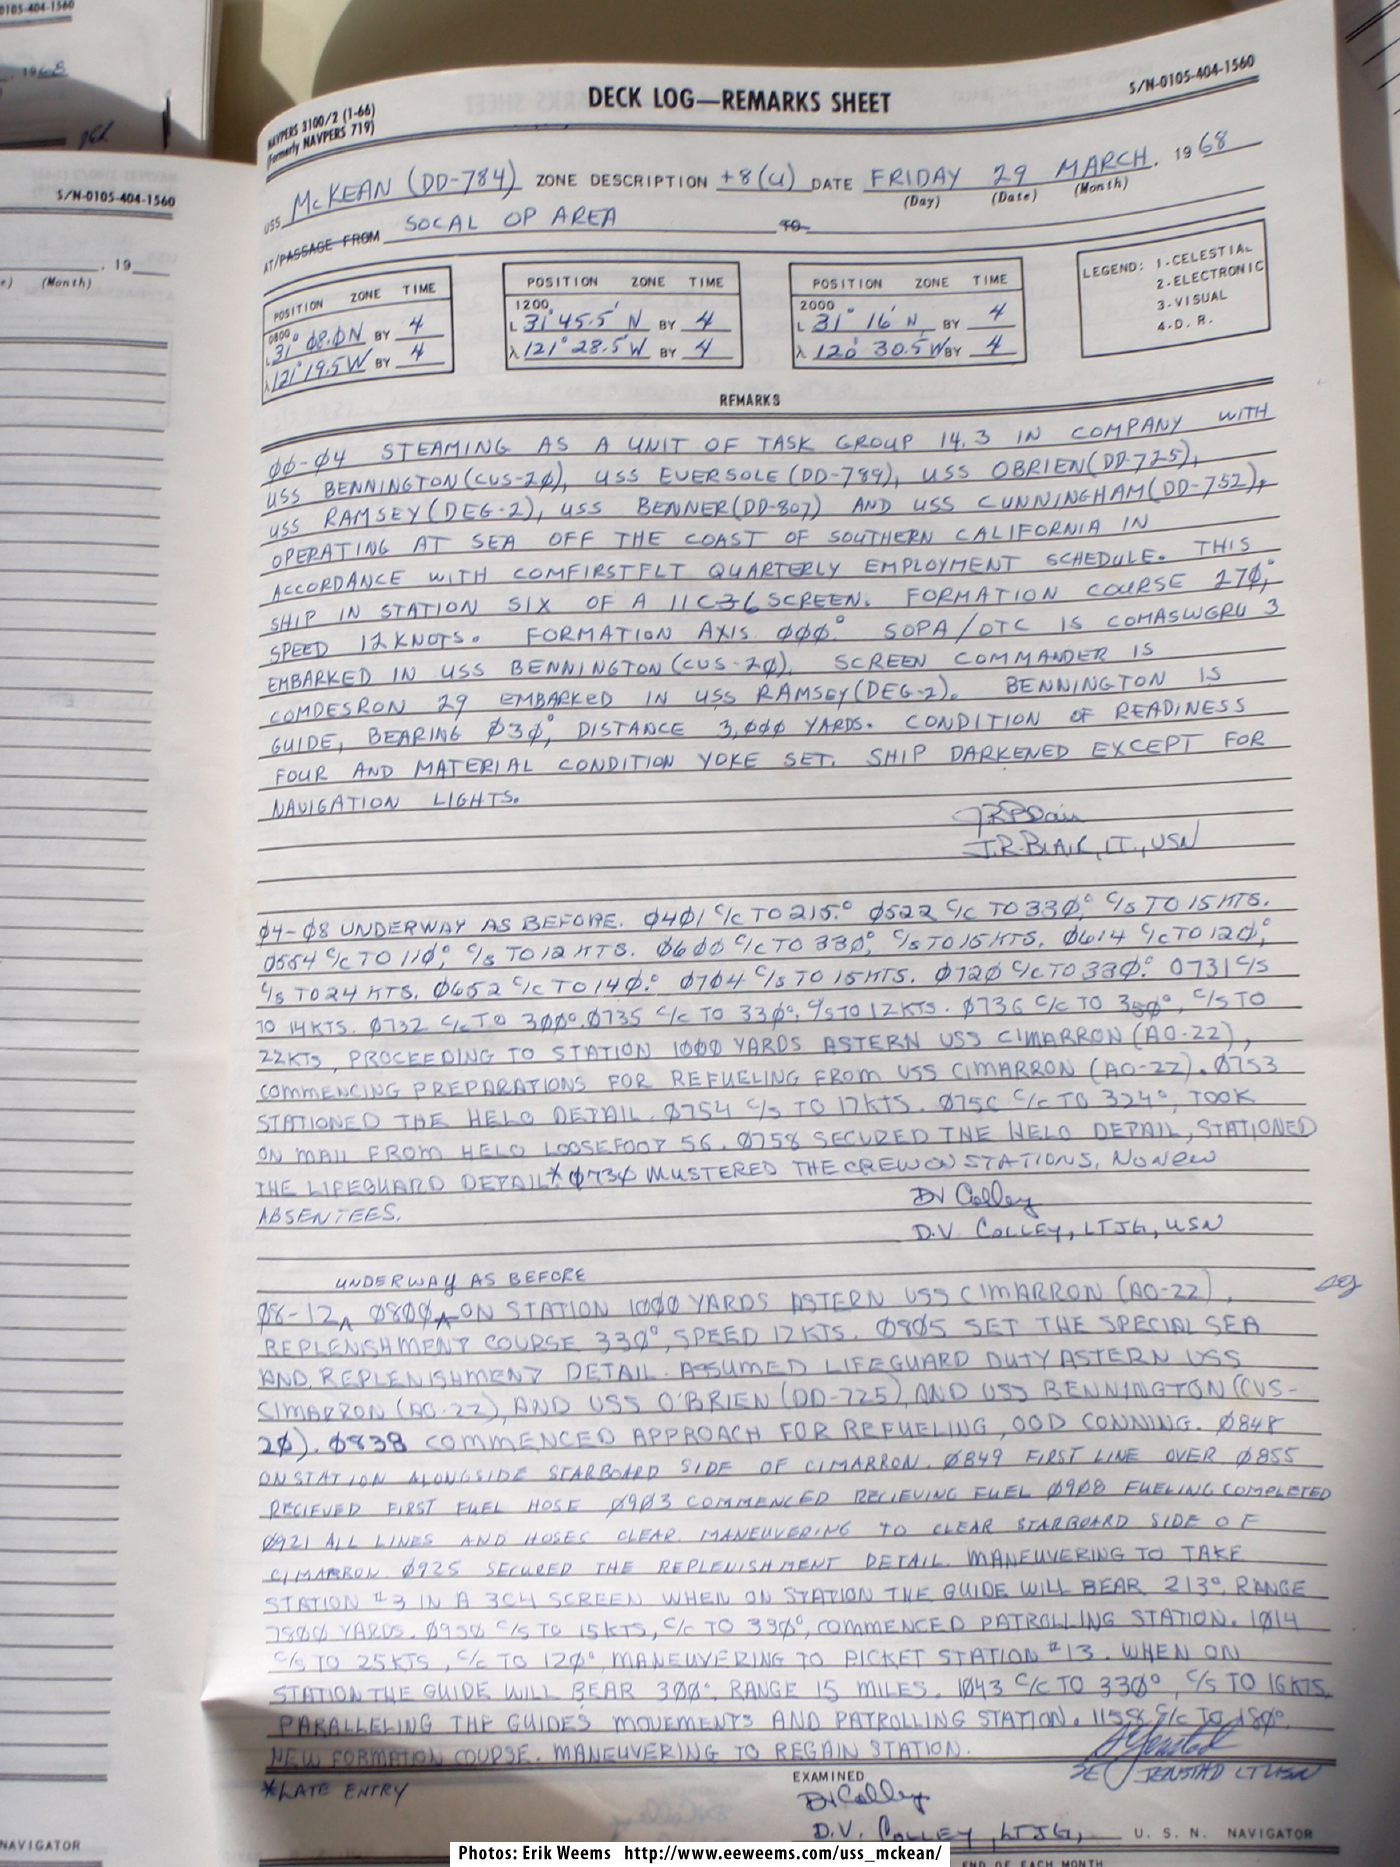 0105-404-1560
1968
S/N-0105-404-1560
, 19
(Month)
NAVIGATOR
NAVPERS 3100/2 (1-66)
(Formerly NAVPERS 719)
DECK LOG—REMARKS SHEET
S/N-0105-404-1560
USS McKEAN (DD-784) ZONE DESCRIPTION +8(U) DATE FRIDAY 29 MARCH. 1968
(Day) (Date) (Month)
AT/PASSAGE FROM SOCAL OP AREA TO
POSITION ZONE TIME
0800
L 31° 08.0N BY 4
λ 121° 19.5W BY 4
POSITION ZONE TIME
1200
L 31° 45.5' N BY 4
λ 121° 28.5'W BY 4
POSITION ZONE TIME
2000
L 31° 16' N BY 4
λ 120° 30.5'W BY 4
LEGEND: 1-CELESTIAL
2-ELECTRONIC
3-VISUAL
4-D. R.
REMARKS
00-04 STEAMING AS A UNIT OF TASK GROUP 14.3 IN COMPANY WITH
USS BENNINGTON (CVS-20), USS EVERSOLE (DD-789), USS OBRIEN (DD-725),
USS RAMSEY (DEG-2), USS BENNER (DD-807) AND USS CUNNINGHAM (DD-752),
OPERATING AT SEA OFF THE COAST OF SOUTHERN CALIFORNIA IN
ACCORDANCE WITH COMFIRSTFLT QUARTERLY EMPLOYMENT SCHEDULE. THIS
SHIP IN STATION SIX OF A 11C36 SCREEN. FORMATION COURSE 270°,
SPEED 12 KNOTS. FORMATION AXIS 000°. SOPA/OTC IS COMASWGRU 3
EMBARKED IN USS BENNINGTON (CVS-20). SCREEN COMMANDER IS
COMDESRON 29 EMBARKED IN USS RAMSEY (DEG-2). BENNINGTON IS
GUIDE, BEARING 030°, DISTANCE 3,000 YARDS. CONDITION OF READINESS
FOUR AND MATERIAL CONDITION YOKE SET. SHIP DARKENED EXCEPT FOR
NAVIGATION LIGHTS.
J.R. BLAIR, LT., USN
04-08 UNDERWAY AS BEFORE. 0401 C/C TO 215°. 0522 C/C TO 330°, C/S TO 15 KTS.
0554 C/C TO 110°, C/S TO 12 KTS. 0600 C/C TO 330°, C/S TO 15 KTS. 0614 C/C TO 120°,
C/S TO 24 KTS. 0652 C/C TO 140°. 0704 C/S TO 15 KTS. 0720 C/C TO 330°. 0731 C/S
TO 14 KTS. 0732 C/C TO 300°. 0735 C/C TO 330°, C/S TO 12 KTS. 0736 C/C TO °, C/S TO
22KTS, PROCEEDING TO STATION 1000 YARDS ASTERN USS CIMARRON (AO-22),
COMMENCING PREPARATIONS FOR REFUELING FROM USS CIMARRON (AO-22). 0753
STATIONED THE HELO DETAIL. 0754 C/S TO 17KTS. 0756 C/C TO 324°, TOOK
ON MAIL FROM HELO LOOSEFOOT 56. 0758 SECURED THE HELO DETAIL, STATIONED
THE LIFEGUARD DETAIL.* 0730 MUSTERED THE CREW ON STATIONS, NO NEW
ABSENTEES.
DV Colley
D.V. COLLEY, LTJG, USN
UNDERWAY AS BEFORE
08-12 0800 ON STATION 1000 YARDS ASTERN USS CIMARRON (AO-22),
REPLENISHMENT COURSE 330°, SPEED 12KTS. 0805 SET THE SPECIAL SEA
AND REPLENISHMENT DETAIL. ASSUMED LIFEGUARD DUTY ASTERN USS
CIMARRON (AO-22), AND USS O'BRIEN (DD-725), AND USS BENNINGTON (CVS-
20). 0838 COMMENCED APPROACH FOR REFUELING, OOD CONNING. 0848
ON STATION ALONGSIDE STARBOARD SIDE OF CIMARRON. 0849 FIRST LINE OVER 0855
RECIEVED FIRST FUEL HOSE 0903 COMMENCED RECIEVING FUEL 0908 FUELING COMPLETED
0921 ALL LINES AND HOSES CLEAR. MANEUVERING TO CLEAR STARBOARD SIDE OF
CIMARRON. 0925 SECURED THE REPLENISHMENT DETAIL. MANEUVERING TO TAKE
STATION #3 IN A 3C4 SCREEN WHEN ON STATION THE GUIDE WILL BEAR 213°, RANGE
7800 YARDS. 0950 C/S TO 15KTS, C/C TO 330°, COMMENCED PATROLLING STATION. 1014
C/S TO 25KTS, C/C TO 120°, MANEUVERING TO PICKET STATION #13. WHEN ON
STATION THE GUIDE WILL BEAR 300°, RANGE 15 MILES. 1043 C/C TO 330°, C/S TO 16KTS,
PARALLELING THE GUIDES MOVEMENTS AND PATROLLING STATION. 1158 C/C TO 180°,
NEW FORMATION COURSE. MANEUVERING TO REGAIN STATION.
JENSTAD LT USN
*LATE ENTRY
EXAMINED
DV Colley
D.V. COLLEY, LTJG, U. S. N. NAVIGATOR
END OF EACH MONTH
Photos: Erik Weems http://www.eeweems.com/uss_mckean/